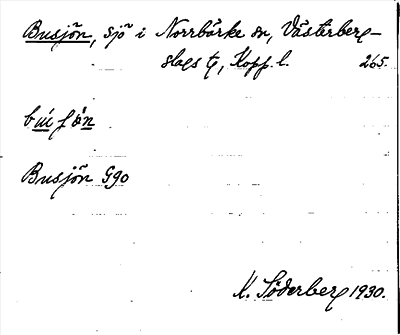 Busjön, sjö i Norrbärke sn, Västerberg-
slags tg, Kopp. l. 265.
búſòn
Busjön G90
K. Söderberg 1930.